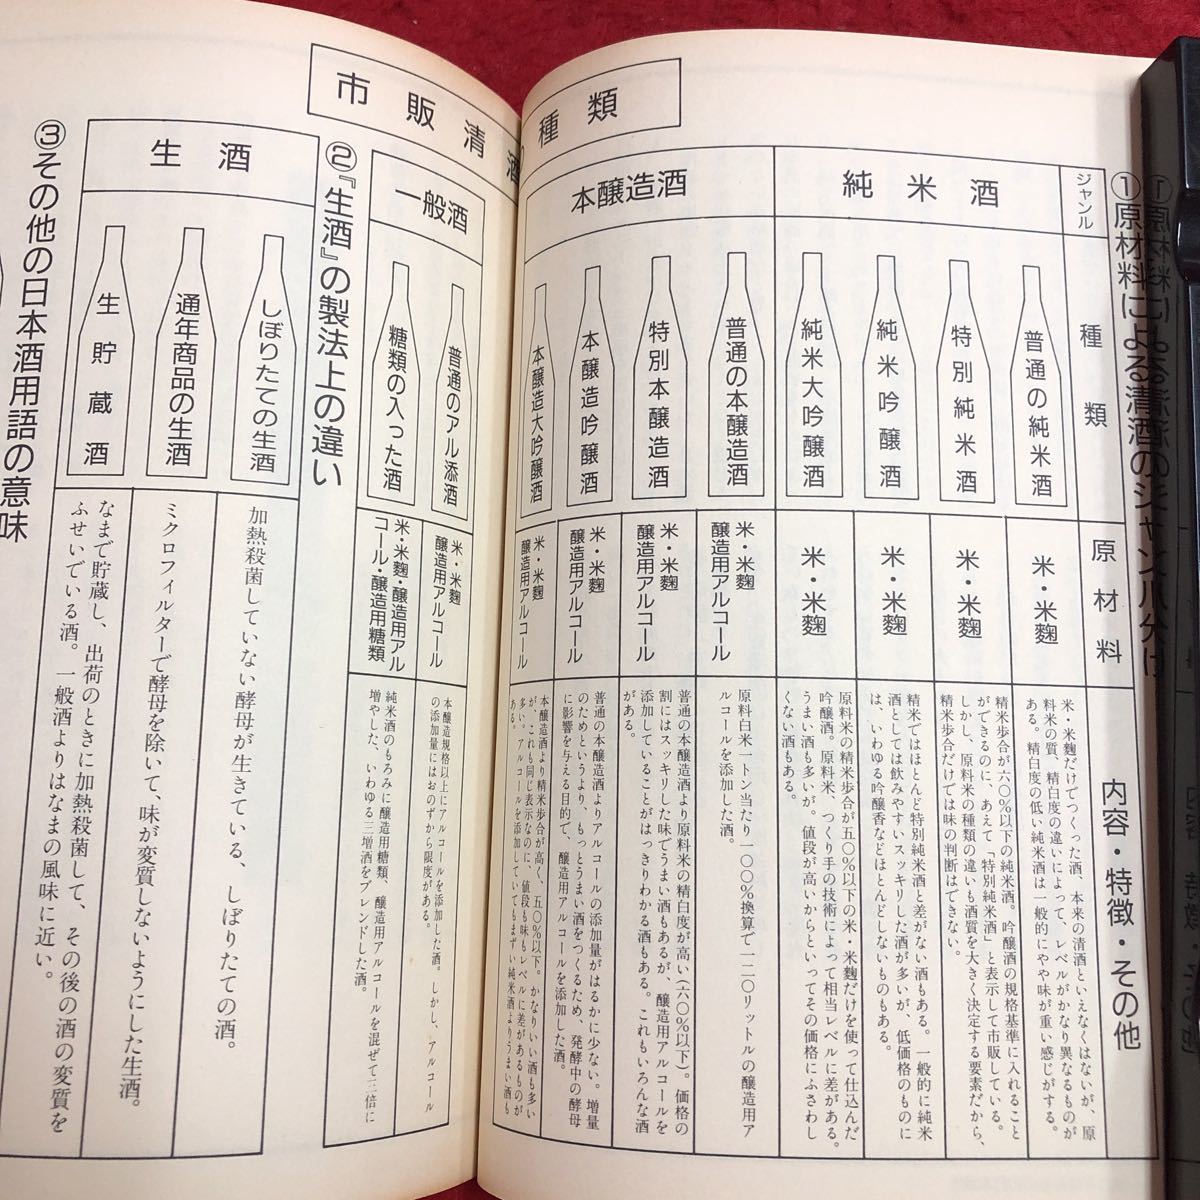 市販清酒の種類
①原材料による清酒のジャンル分け
ジャンル
種類
原材料
内容・特徴・その他
純米酒
普通の純米酒
米・米麹
米・米麹だけでつくった酒、本来の清酒といえなくはないが、原
料米の質、精白度の違いによって、レベルがかなり異なるものが
ある。精白度の低い純米酒は一般的にやや味が重い感じがする。
特別純米酒
米・米麹
精米歩合が六〇%以下の純米酒。吟醸酒の規格基準に入れること
ができるのに、あえて「特別純米酒」と表示して市販している。
しかし、原料米の種類の違いも酒質を大きく決定する要素だから、
精米歩合だけでは味の判断はできない。
純米吟醸酒
米・米麹
精米ではほとんど特別純米酒と差がない酒もある。一般的に純米
酒としては飲みやすいスッキリした酒が多いが、低価格のものに
は、いわゆる吟醸香などほとんどしないものもある。
純米大吟醸酒
米・米麹
原料米の精米歩合が五〇%以下の米・米麹だけを使って仕込んだ
吟醸酒。原料米、つくり手の技術によって相当レベルに差がある。
うまい酒も多いが、値段が高いからといってその価格にふさわし
くない酒もある。
本醸造酒
普通の本醸造酒
米・米麹
醸造用アルコール
原料白米一トン当たり一〇〇%換算で一二〇リットルの醸造用ア
ルコールを添加した酒。
特別本醸造酒
米・米麹
醸造用アルコール
普通の本醸造酒より原料米の精白度が高い(六〇%以下)。価格の
割にはスッキリした味でうまい酒もあるが、醸造用アルコールを
添加していることがはっきりわかる酒もある。これもいろんな酒
がある。
本醸造吟醸酒
米・米麹
醸造用アルコール
普通の本醸造酒よりアルコールの添加量がはるかに少ない。増量
のためというより、もっとうまい酒をつくるため、発酵中の酵母
に影響を与える目的で、醸造用アルコールを添加した酒。
本醸造大吟醸酒
米・米麹
醸造用アルコール
本醸造酒より精米歩合が高く、五〇%以下。かなりいい酒も多い
が、これも同じ表示なのに、値段も味もレベルに差があるものが
多い。アルコールを添加していてもまずい純米酒よりうまい酒も
ある。
一般酒
普通のアル添酒
米・米麹
醸造用アルコール
本醸造規格以上にアルコールを添加した酒。しかし、アルコール
の添加量にはおのずから限度がある。
糖類の入った酒
米・米麹・醸造用アル
コール・醸造用糖類
純米酒のもろみに醸造用糖類、醸造用アルコールを混ぜて三倍に
増やした、いわゆる三増酒をブレンドした酒。
②『生酒』の製法上の違い
生酒
しぼりたての生酒
加熱殺菌していない酵母が生きている、しぼりたての酒。
通年商品の生酒
ミクロフィルターで酵母を除いて、味が変質しないようにした生酒。
生貯蔵酒
なまで貯蔵し、出荷のときに加熱殺菌して、その後の酒の変質を
ふせいでいる酒。一般酒よりはなまの風味に近い。
③その他の日本酒用語の意味